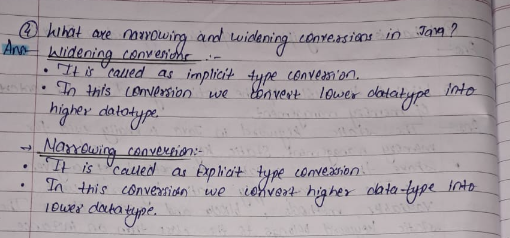 ④ What are narrowing and widening conversions in Java?
Ans Widening conversions :-
• It is called as implicit type conversion.
• In this conversion we convert lower datatype into
higher datatype.
→ Narrowing conversion:-
• It is called as Explicit type conversion.
• In this conversion we convert higher data-type into
lower datatype.